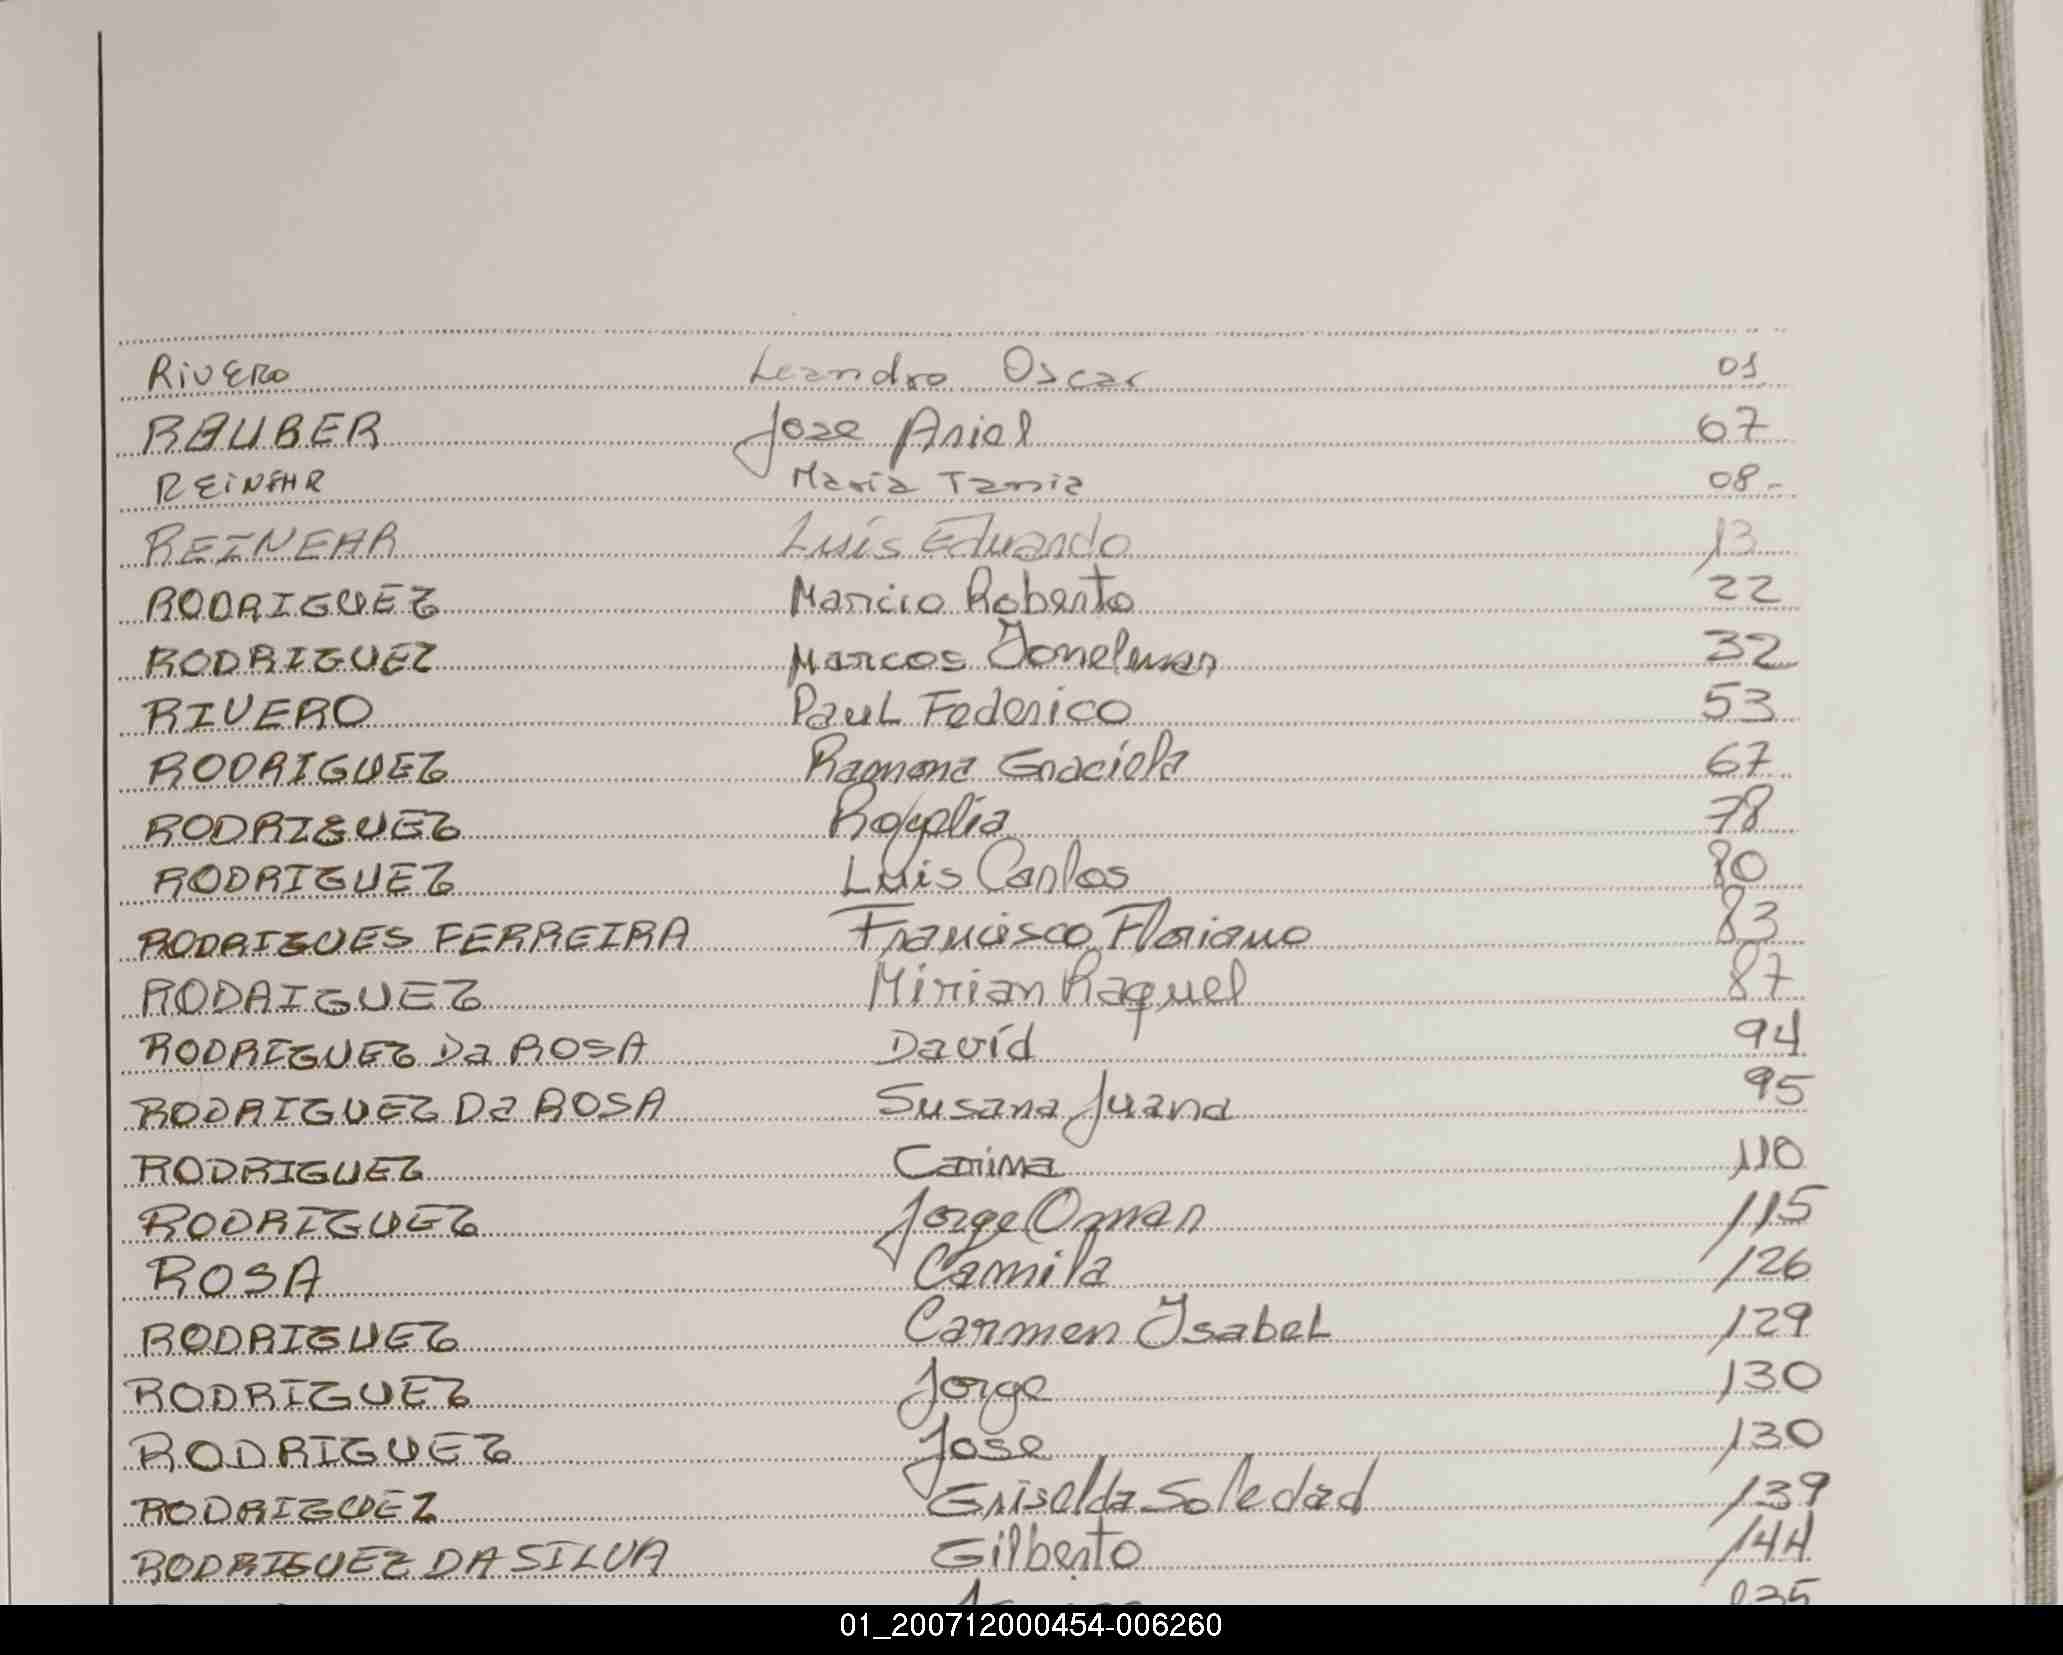 RIVERO Leandro Oscar 01
RAUBER Jose Ariel 67
REINEHR Maria Tania 08.
REINEHR Luis Eduardo 13
RODRIGUEZ Marcio Roberto 22
RODRIGUEZ Marcos 32
RIVERO Paul Federico 53
RODRIGUEZ Ramona Graciela 67
RODRIGUEZ Rogelia 78
RODRIGUEZ Luis Carlos 80
RODRIGUES FERREIRA Francisco Floriano 83
RODRIGUEZ Mirian Raquel 87
RODRIGUEZ Da ROSA David 94
RODRIGUEZ Da ROSA Susana Juana 95
RODRIGUEZ Carima 110
RODRIGUEZ Jorge Omar 115
ROSA Camila 126
RODRIGUEZ Carmen Isabel 129
RODRIGUEZ Jorge 130
RODRIGUEZ Jose 130
RODRIGUEZ Griselda Soledad 139
RODRIGUEZ DA SILVA Gilberto 144
01_200712000454-006260